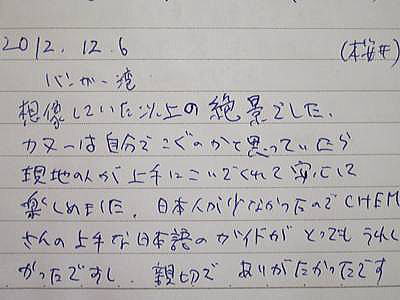 2012.12.6 (桜井)
パンガー湾
想像していた以上の絶景でした.
カヌーは自分でこぐのかと思っていたら
現地の人が上手にこいでくれて安心して
楽しめました. 日本人が少なかったのでCHEM
さんの上手な日本語のガイドがとってもうれし
かったですし. 親切でありがたかったです